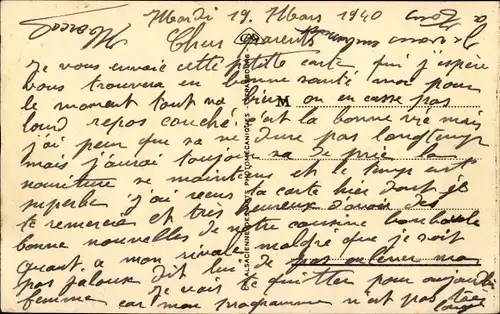 Mardi 19 Mars 1940
Chers Parents
Je vous envoie cette petite carte qui j'espère
vous trouvera en bonne santé moi pour
le moment tout va bien on en casse pas
lourd repos couché c'est la bonne vie mais
j'ai peur que sa ne dure pas longtemp
mais j'aurai toujour sa de prie la
nouriture se maintiens et le temp est
superbe j'ai recus la carte hier dont je
te remercie et très heureux d'avoir des
bonne nouvelles de notre cousine
Quant a mon rivale malgré que je soit
pas jaloux dit lui de pas enlever ma
femme car mon programme n'est pas très
Je vais te quitter pour aujourdui
long
M
ALSACIENNE DES ARTS PHOTOMÉCANIQUES STRASBOURG